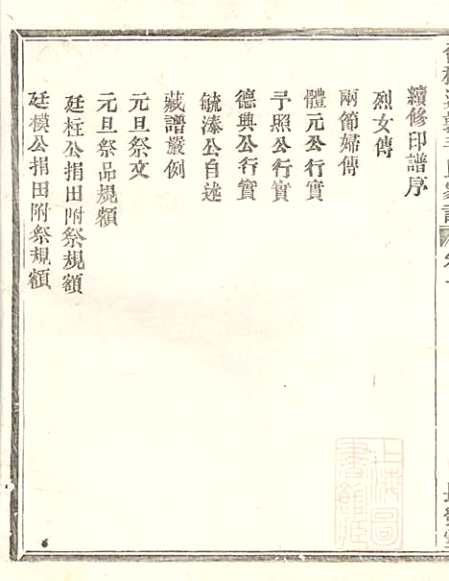 續修印譜序
烈女傳
兩節婦傳
體元公行實
予照公行實
德輿公行實
毓溱公自述
藏譜嚴例
元旦祭文
元旦祭品規額
廷柱公捐田附祭規額
廷模公捐田附祭規額
上海圖
書館臧